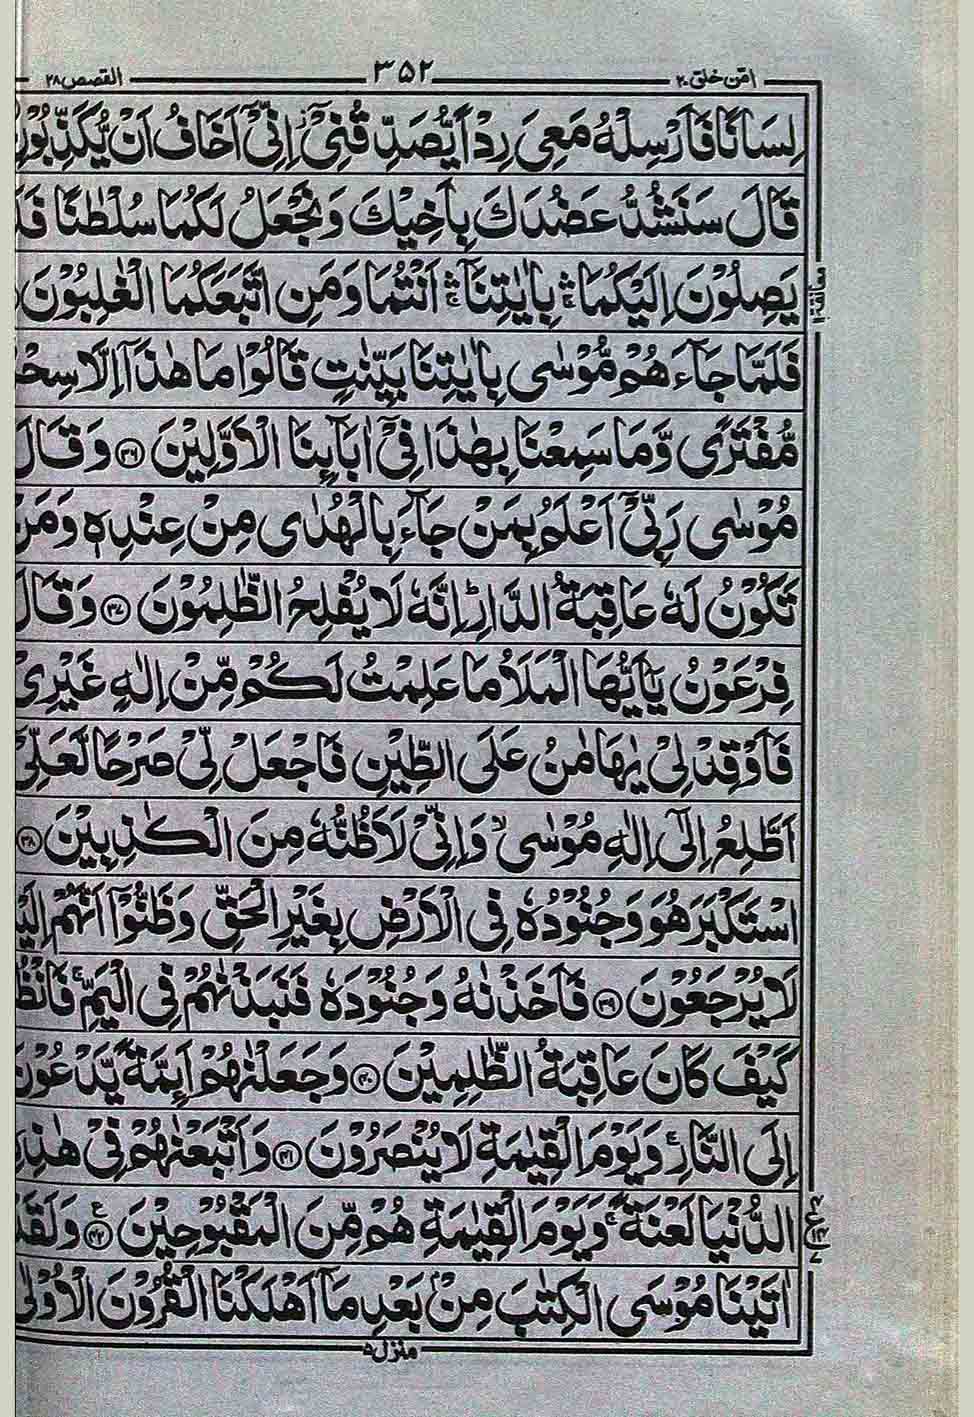 امّن خلق ٢٠ ٣٥٢ القصص ٢٨
لِسَانًا فَاَرْسِلْهُ مَعِيَ رِدْاً يُّصَدِّقُنِيْٓ ز اِنِّيْٓ اَخَافُ اَنْ يُّكَذِّبُوْنِ
قَالَ سَنَشُدُّ عَضُدَكَ بِاَخِيْكَ وَنَجْعَلُ لَكُمَا سُلْطٰنًا فَلَا
يَصِلُوْنَ اِلَيْكُمَا ۛۚ بِاٰيٰتِنَآ ۛۚ اَنْتُمَا وَمَنِ اتَّبَعَكُمَا الْغٰلِبُوْنَ
معانقة
فَلَمَّا جَآءَهُمْ مُّوْسٰى بِاٰيٰتِنَا بَيِّنٰتٍ قَالُوْا مَا هٰذَآ اِلَّا سِحْ
مُّفْتَرًى وَّمَا سَمِعْنَا بِهٰذَا فِيْٓ اٰبَآئِنَا الْاَوَّلِيْنَ ٣٦ وَقَالَ
مُوْسٰى رَبِّيْٓ اَعْلَمُ بِمَنْ جَآءَ بِالْهُدٰى مِنْ عِنْدِهٖ وَمَنْ
تَكُوْنُ لَهٗ عَاقِبَةُ الدَّارِ ؕ اِنَّهٗ لَا يُفْلِحُ الظّٰلِمُوْنَ ٣٧ وَقَالَ
فِرْعَوْنُ يٰٓاَيُّهَا الْمَلَاُ مَا عَلِمْتُ لَكُمْ مِّنْ اِلٰهٍ غَيْرِيْ
فَاَوْقِدْ لِيْ يٰهَامٰنُ عَلَى الطِّيْنِ فَاجْعَلْ لِّيْ صَرْحًا لَّعَلِّيْٓ
اَطَّلِعُ اِلٰٓى اِلٰهِ مُوْسٰى ۙ وَاِنِّيْ لَاَظُنُّهٗ مِنَ الْكٰذِبِيْنَ ٣٨
اسْتَكْبَرَ هُوَ وَجُنُوْدُهٗ فِي الْاَرْضِ بِغَيْرِ الْحَقِّ وَظَنُّوْٓا اَنَّهُمْ اِلَيْ
لَا يُرْجَعُوْنَ ٣٩ فَاَخَذْنٰهُ وَجُنُوْدَهٗ فَنَبَذْنٰهُمْ فِي الْيَمِّ ۚ فَانْظُ
كَيْفَ كَانَ عَاقِبَةُ الظّٰلِمِيْنَ ٤٠ وَجَعَلْنٰهُمْ اَئِمَّةً يَّدْعُوْنَ
اِلَى النَّارِ ۚ وَيَوْمَ الْقِيٰمَةِ لَا يُنْصَرُوْنَ ٤١ وَاَتْبَعْنٰهُمْ فِيْ هٰذِهِ
الدُّنْيَا لَعْنَةً ۚ وَيَوْمَ الْقِيٰمَةِ هُمْ مِّنَ الْمَقْبُوْحِيْنَ ٤٢ ع وَلَقَدْ
ع
اٰتَيْنَا مُوْسَى الْكِتٰبَ مِنْۢ بَعْدِ مَآ اَهْلَكْنَا الْقُرُوْنَ الْاُوْلٰى
منزل ٥